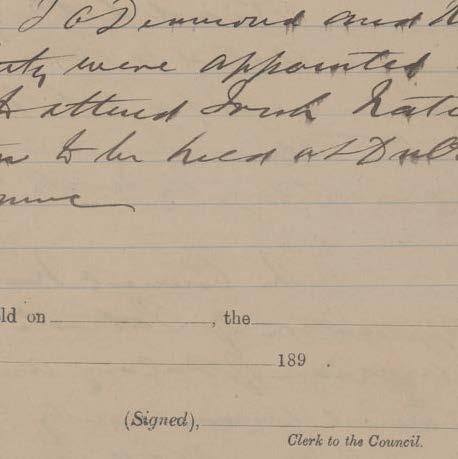 J O'Desmond and
were appointed
to attend Irish Nati
to be held at Dub
ld on , the
189 .
(Signed),
Clerk to the Council.